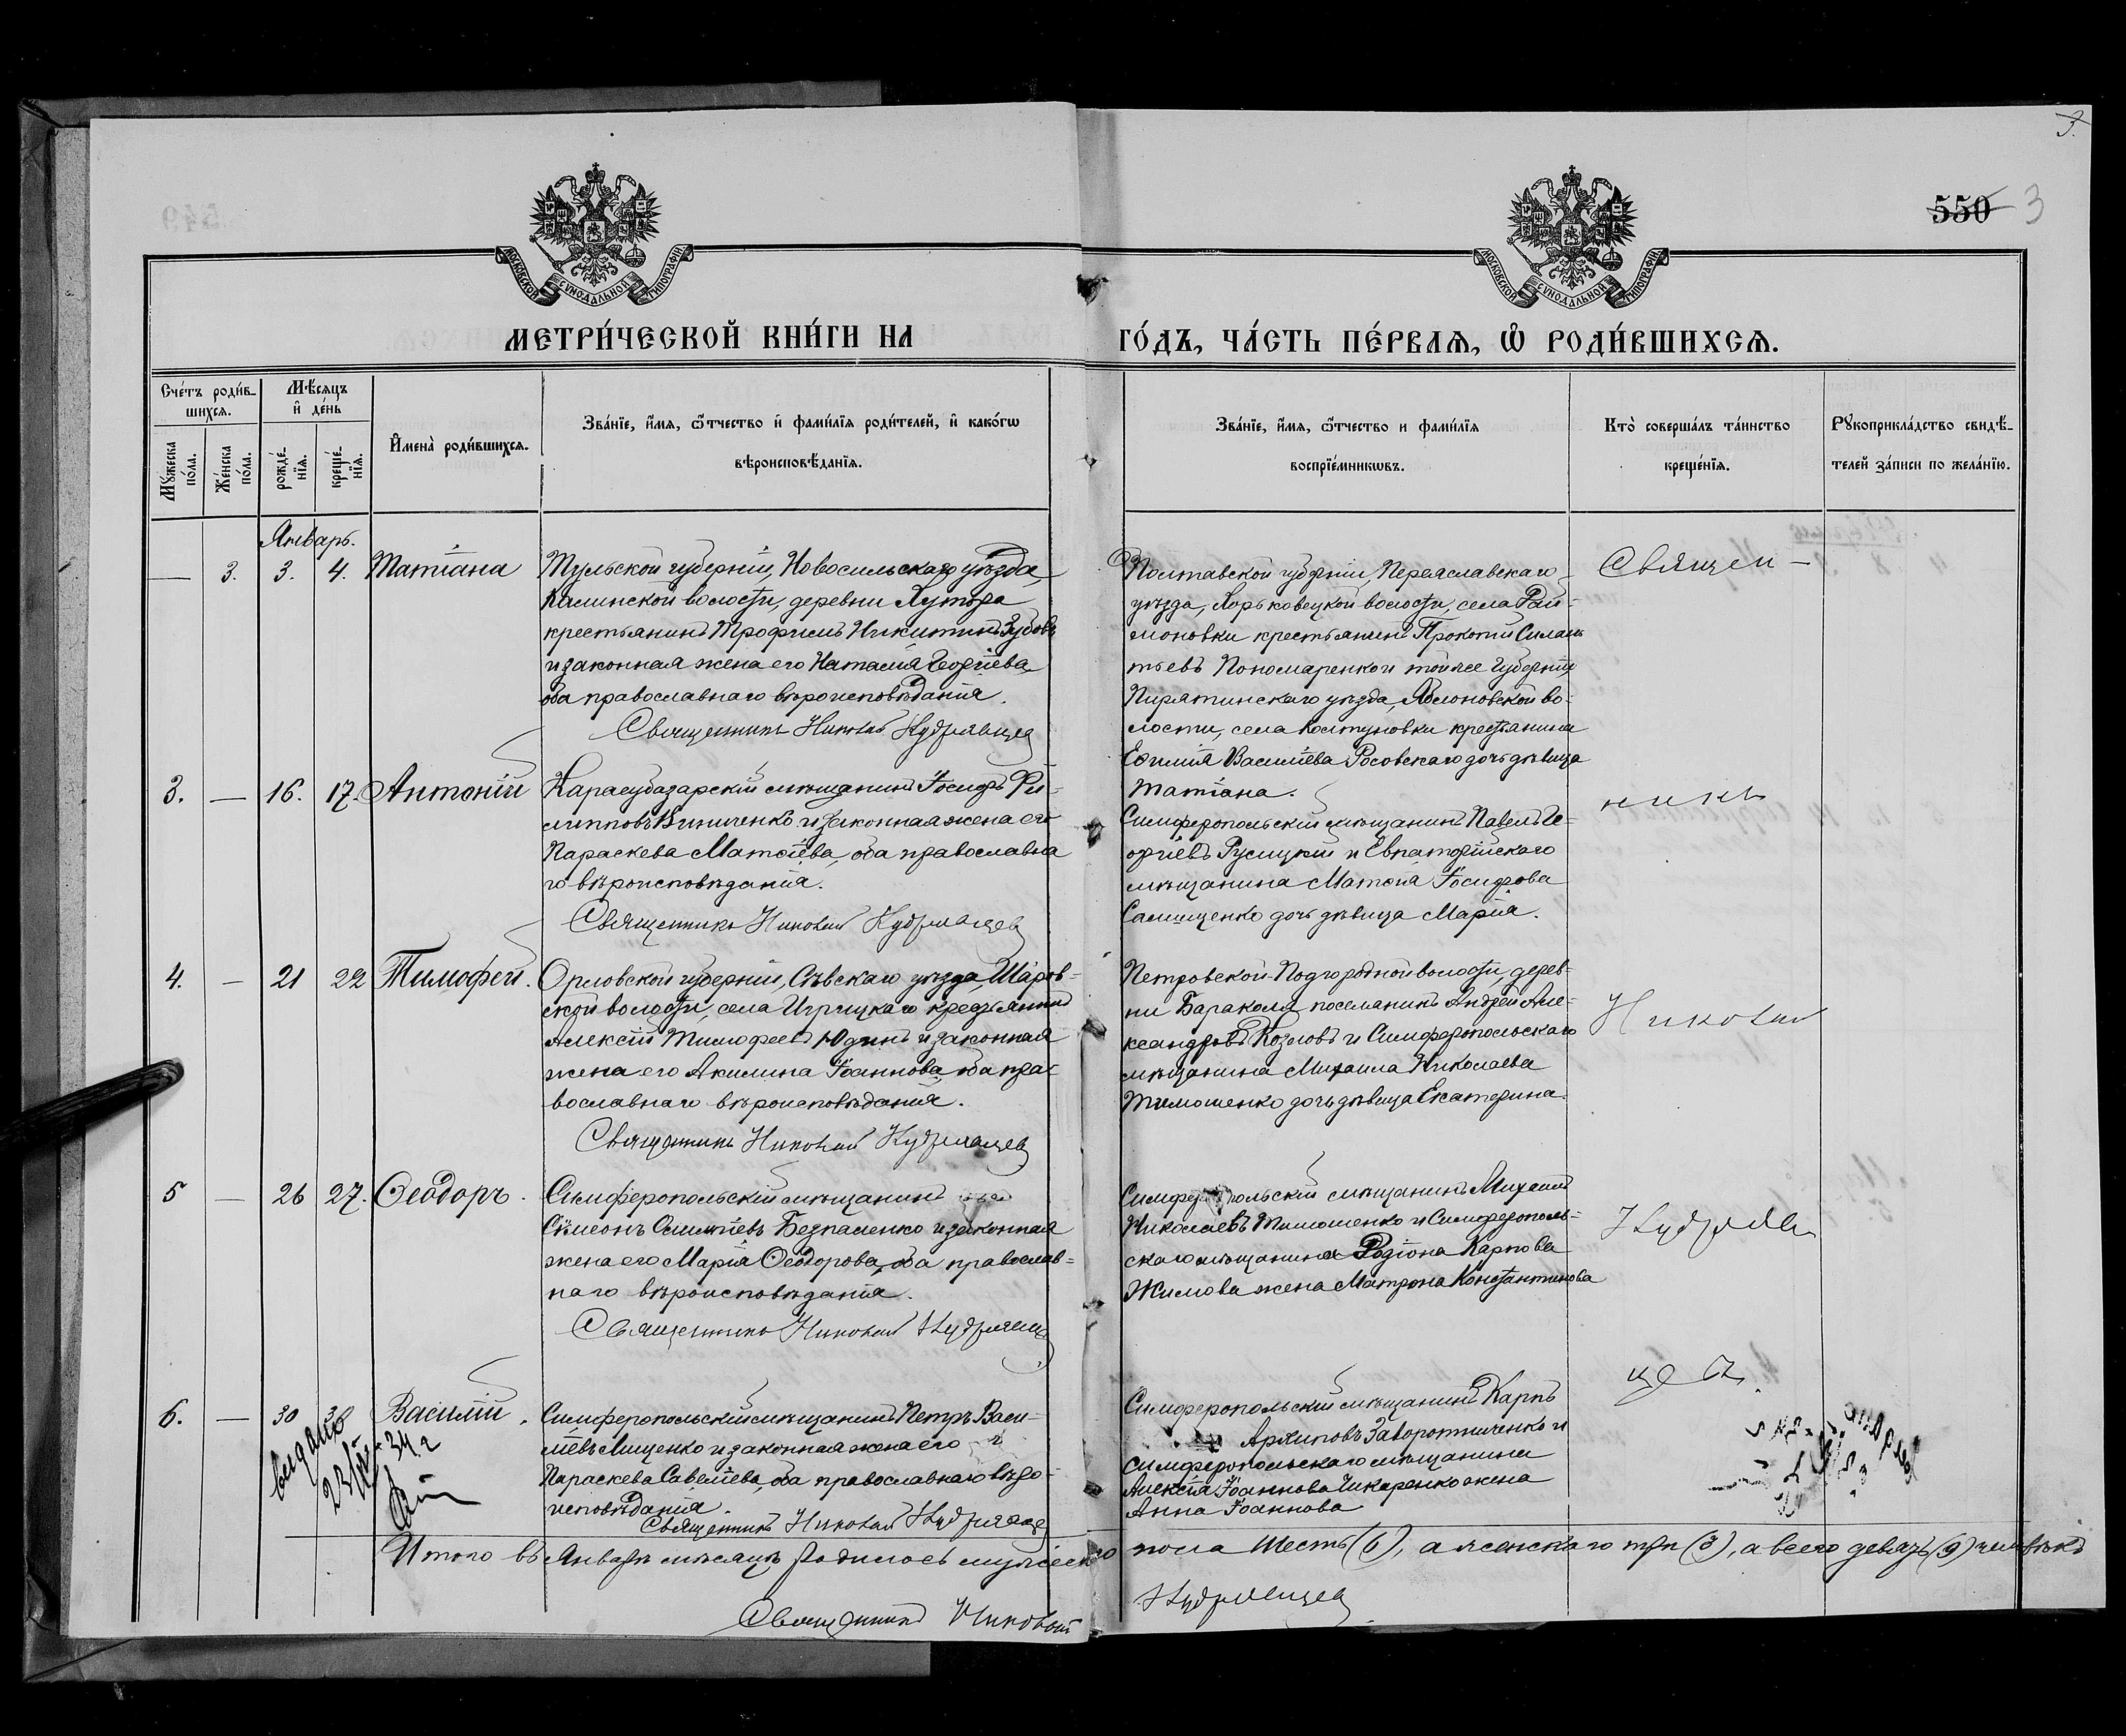 3.
550 3
МОСКОВСКОЙ СѴНОДАЛЬНОЙ ТИПОГРАФІИ
МОСКОВСКОЙ СѴНОДАЛЬНОЙ ТИПОГРАФІИ
МЕТРИ́ЧЕСКОЙ КНИ́ГИ НА ГО́ДЪ, ЧА́СТЬ ПЕ́РВАѦ, Ѽ РОДИ́ВШИХСѦ.
Сче́тъ роди́в-
шихсѧ.
Мꙋжеска по́ла.
Же́нска по́ла.
Мѣ́сѧцъ
и҆ де́нь
рожде́-
нїѧ.
креще́-
нїѧ.
И҆мена̀ роди́вшихсѧ.
Зва́нїе, и҆́мѧ, ѻ҆́тчество и҆ фами́лїѧ роди́телей, и҆ како́гѡ
вѣроисповѣ́данїѧ.
Зва́нїе, и҆́мѧ, ѻ҆́тчество и фами́лїѧ
воспрїе́мникѡвъ.
Кто̀ соверша́лъ та́инство
креще́нїѧ.
Рꙋкоприкла́дство свидѣ́-
телей за́писи по жела́нїю.
Январь.
— 3. 3. 4. Татіана
Тульской губерніи, Новосильскаго уѣзда
Калинской волости, деревни Хутора
крестьянинъ Трофимъ Никитинъ Зубовъ
и законная жена его Наталія Георгіева,
оба православнаго вѣроисповѣданія.
Священникъ Николай Кудрявцев
Полтавской губерніи, Переяславскаго
уѣзда, Хорьковецкой волости, села Рай-
моновки крестьянинъ Прокопій Силан-
тьевъ Пономаренко и той же губерніи,
Пирятинскаго уѣзда, Яблоновской во-
лости, села Колтуновки крестьянина
Евфимія Василіева Росовскаго дочь дѣвица
Татіана.
Священ-
3. — 16. 17. Антоній
Карасубазарскій мѣщанинъ Іосифъ Фи-
липповъ Виниченко и законная жена его
Параскева Матѳіева, оба православна
го вѣроисповѣданія.
Священникъ Николай Кудрявцев
Симферопольскій мѣщанинъ Павелъ Ге-
оргіевъ Русицкій и Евпаторійскаго
мѣщанина Матѳія Іосифова
Самищенко дочь дѣвица Марія.
никъ
4. — 21 22 Тимофей.
Орловской губерніи, Сѣвскаго уѣзда, Шаров-
ской волости, села Игрицкаго крестьянинъ
Алексій Тимофеевъ Юдинъ и законная
жена его Акилина Іоаннова, оба пра-
вославнаго вѣроисповѣданія.
Священникъ Николай Кудрявцев
Петровской-Подгородной волости, дерев-
ни Баракола поселянинъ Андрей Але-
ксандровъ Козловъ и Симферопольскаго
мѣщанина Михаила Николаева
Тимошенко дочь дѣвица Екатерина.
Николай
5 — 26 27. Ѳеодоръ.
Симферопольскій мѣщанинъ
Сѵмеонъ Безпаленко и законная
жена его Марія Ѳеодорова, оба православ-
наго вѣроисповѣданія.
Священникъ Николай Кудрявцев
Симферопольскій мѣщанинъ Михаилъ
Николаевъ Тимошенко и Симферополь-
скаго мѣщанина Родіона Карпова
Жилова жена Матрона Константинова
Кудрявъ
6. — 30 Василій.
Симферопольскій мѣщанинъ Петръ Васи-
ліевъ Лищенко и законная жена его
Параскева Савеліева, оба православнаго вѣро-
исповѣданія.
Священникъ Николай Кудрявцев
выдано
34 г
Симферопольскій мѣщанинъ Карпъ
Архиповъ Заворотниченко и
симферопольскаго мѣщанина
Алексія Іоаннова Чикаренко жена
Анна Іоаннова
цевъ.
Итого въ Январѣ мѣсяцѣ родилось мужескаго пола Шесть (6), а женскаго три (3), а всего девять (9) человѣкъ
Священникъ Николай Кудрявцев